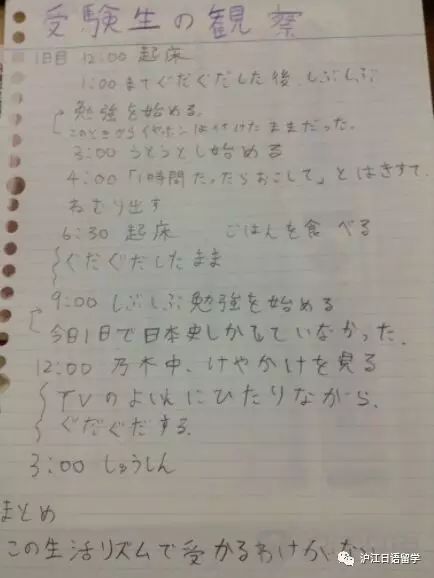 受験生の観察
1日目 12:00 起床
1:00までぐだぐだした後、しぶしぶ
勉強を始める。
このときからイヤホンは付けたままだった。
3:00 うとうとし始める
4:00「1時間たったらおこして」とはきすて、
ねむり出す
6:30 起床 ごはんを食べる
ぐだぐだしたまま
9:00 しぶしぶ勉強を始める
今日1日で日本史しかしていなかった。
12:00 乃木中、けやかけを見る
TVのよいんにひたりながら、
ぐだぐだする。
3:00 しゅうしん
まとめ
この生活リズムで受かるわけがな
沪江日语留学